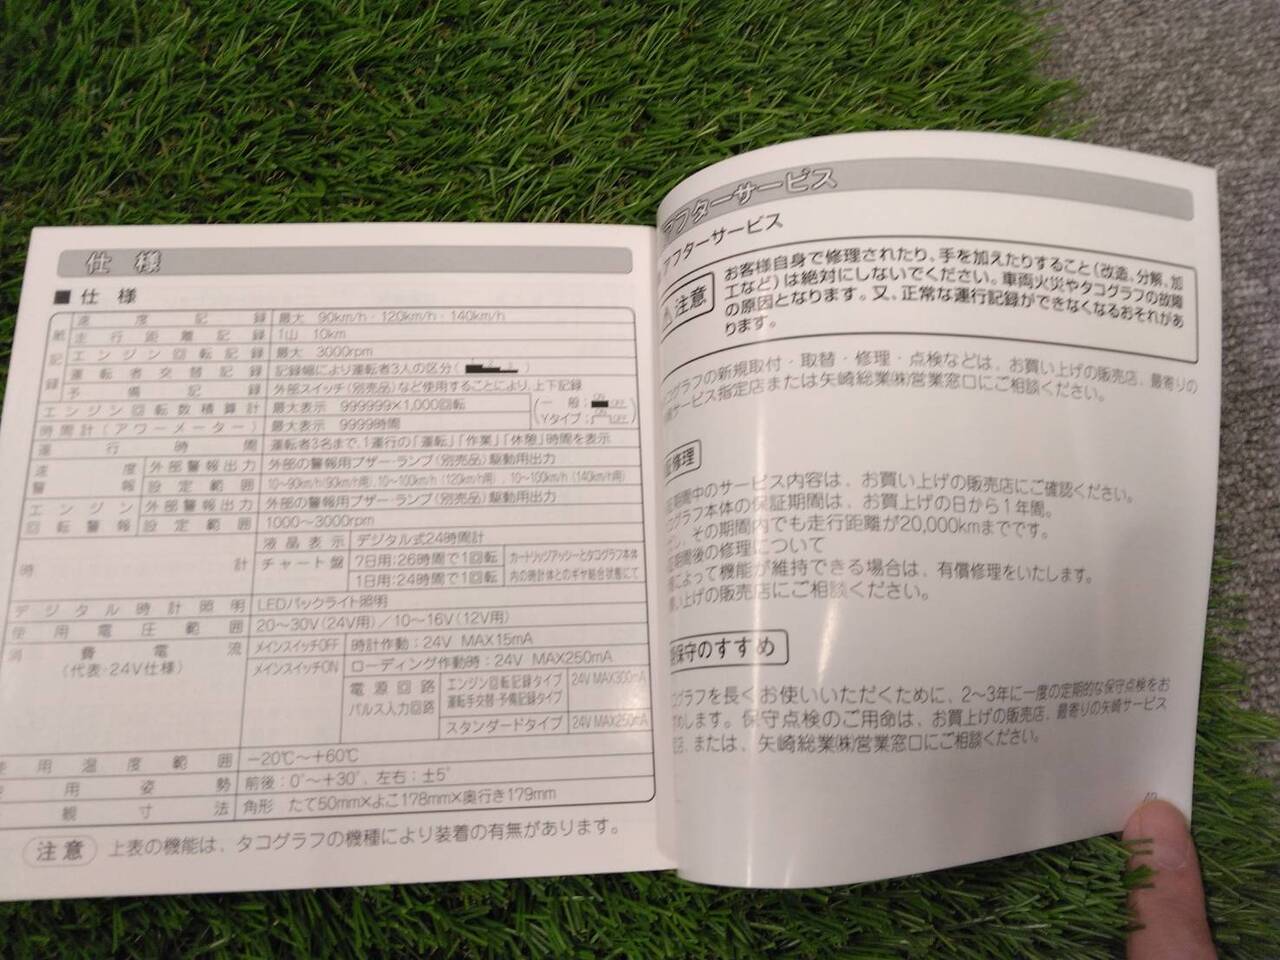 仕様
■ 仕様
速度記録 最大 90km/h・120km/h・140km/h
走行距離記録 1山 10km
エンジン回転記録 最大 3000rpm
運転者交替記録 記録幅により運転者3人の区分( 1 2 3 )
予備記録 外部スイッチ(別売品)など使用することにより、上下記録
エンジン回転数積算計 最大表示 999999×1,000回転
時間計(アワーメーター) 最大表示 9999時間
(一般: ON OFF
Yタイプ: ON OFF)
運行時間 運転者3名まで、1運行の「運転」「作業」「休憩」時間を表示
速度警報 外部警報出力 外部の警報用ブザー・ランプ(別売品)駆動用出力
設定範囲 10〜90km/h(90km/h用)、10〜100km/h(120km/h用)、10〜100km/h(140km/h用)
エンジン回転警報 外部警報出力 外部の警報用ブザー・ランプ(別売品)駆動用出力
設定範囲 1000〜3000rpm
時計 液晶表示 デジタル式24時間計
チャート盤 7日用:26時間で1回転 カートリッジアッシーとタコグラフ本体
1日用:24時間で1回転 内の時計体とのギヤ結合状態にて
デジタル時計照明 LEDバックライト照明
使用電圧範囲 20〜30V(24V用)/10〜16V(12V用)
消費電流 メインスイッチOFF 時計作動:24V MAX15mA
(代表・24V仕様) メインスイッチON ローディング作動時:24V MAX250mA
電源回路 パルス入力回路 エンジン回転記録タイプ 運転手交替・予備記録タイプ 24V MAX300mA
スタンダードタイプ 24V MAX250mA
使用温度範囲 −20℃〜+60℃
用姿勢 前後:0°〜+30°、左右:±5°
観寸法 角形 たて50mm×よこ178mm×奥行き179mm
注意 上表の機能は、タコグラフの機種により装着の有無があります。
アフターサービス
アフターサービス
注意
お客様自身で修理されたり、手を加えたりすること(改造、分解、加
工など)は絶対にしないでください。車両火災やタコグラフの故障
の原因となります。又、正常な運行記録ができなくなるおそれがあ
ります。
コグラフの新規取付・取替・修理・点検などは、お買い上げの販売店、最寄りの
サービス指定店または矢崎総業㈱営業窓口にご相談ください。
修理
期間中のサービス内容は、お買い上げの販売店にご確認ください。
コグラフ本体の保証期間は、お買上げの日から1年間。
、その期間内でも走行距離が20,000kmまでです。
期間後の修理について
によって機能が維持できる場合は、有償修理をいたします。
い上げの販売店にご相談ください。
保守のすすめ
コグラフを長くお使いいただくために、2〜3年に一度の定期的な保守点検をお
めします。保守点検のご用命は、お買上げの販売店、最寄りの矢崎サービス
店、または、矢崎総業㈱営業窓口にご相談ください。